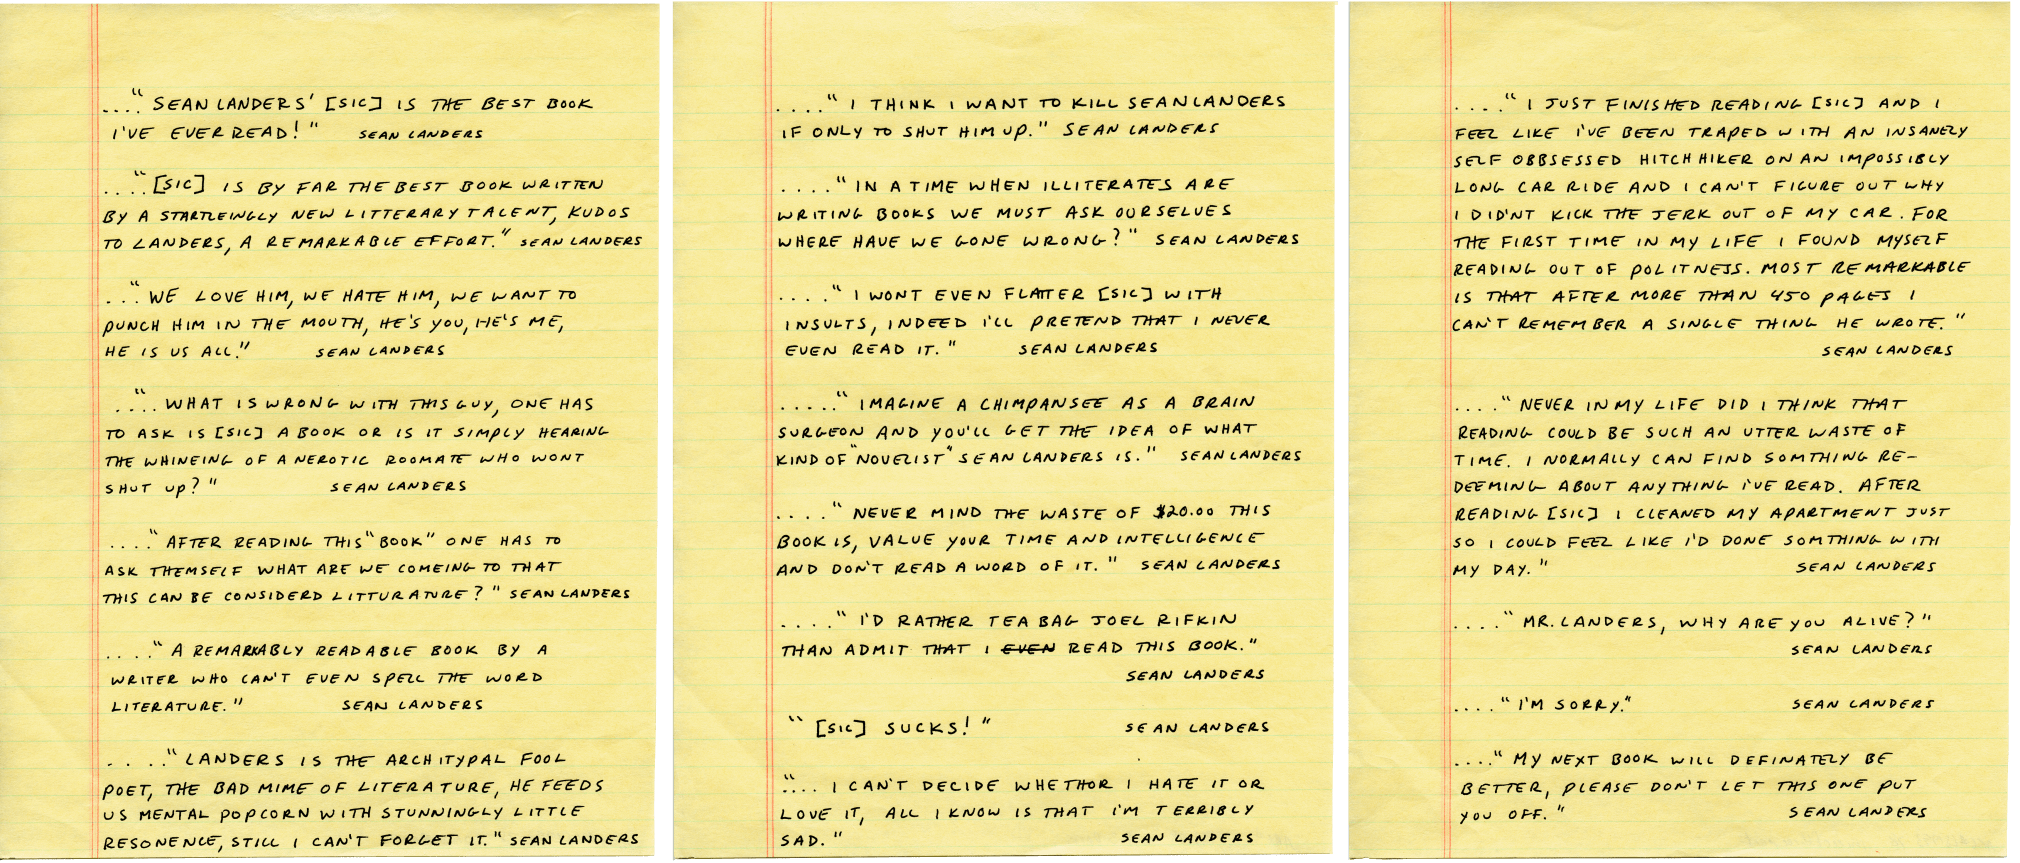 ...." SEAN LANDERS' [SIC] IS THE BEST BOOK
I'VE EVER READ!" SEAN LANDERS
...." [SIC] IS BY FAR THE BEST BOOK WRITTEN
BY A STARTLEINGLY NEW LITTERARY TALENT, KUDOS
TO LANDERS, A REMARKABLE EFFORT." SEAN LANDERS
..." WE LOVE HIM, WE HATE HIM, WE WANT TO
PUNCH HIM IN THE MOUTH, HE'S YOU, HE'S ME,
HE IS US ALL." SEAN LANDERS
...." WHAT IS WRONG WITH THIS GUY, ONE HAS
TO ASK IS [SIC] A BOOK OR IS IT SIMPLY HEARING
THE WHINEING OF A NEROTIC ROOMATE WHO WONT
SHUT UP?" SEAN LANDERS
...." AFTER READING THIS "BOOK" ONE HAS TO
ASK THEMSELF WHAT ARE WE COMEING TO THAT
THIS CAN BE CONSIDERD LITTURATURE?" SEAN LANDERS
...." A REMARKABLY READABLE BOOK BY A
WRITER WHO CAN'T EVEN SPELL THE WORD
LITERATURE." SEAN LANDERS
....." LANDERS IS THE ARCHITYPAL FOOL
POET, THE BAD MIME OF LITERATURE, HE FEEDS
US MENTAL POPCORN WITH STUNNINGLY LITTLE
RESONENCE, STILL I CAN'T FORGET IT." SEAN LANDERS
...." I THINK I WANT TO KILL SEAN LANDERS
IF ONLY TO SHUT HIM UP." SEAN LANDERS
...." IN A TIME WHEN ILLITERATES ARE
WRITING BOOKS WE MUST ASK OURSELVES
WHERE HAVE WE GONE WRONG?" SEAN LANDERS
...." I WONT EVEN FLATTER [SIC] WITH
INSULTS, INDEED I'LL PRETEND THAT I NEVER
EVEN READ IT." SEAN LANDERS
....." IMAGINE A CHIMPANSEE AS A BRAIN
SURGEON AND YOU'LL GET THE IDEA OF WHAT
KIND OF "NOVELIST" SEAN LANDERS IS." SEAN LANDERS
...." NEVER MIND THE WASTE OF $20.00 THIS
BOOK IS, VALUE YOUR TIME AND INTELLIGENCE
AND DON'T READ A WORD OF IT." SEAN LANDERS
...." I'D RATHER TEA BAG JOEL RIFKIN
THAN ADMIT THAT I EVEN READ THIS BOOK."
SEAN LANDERS
" [SIC] SUCKS!" SEAN LANDERS
".... I CAN'T DECIDE WHETHOR I HATE IT OR
LOVE IT, ALL I KNOW IS THAT I'M TERRIBLY
SAD." SEAN LANDERS
...." I JUST FINISHED READING [SIC] AND I
FEEL LIKE I'VE BEEN TRAPED WITH AN INSANELY
SELF OBBSESSED HITCHHIKER ON AN IMPOSSIBLY
LONG CAR RIDE AND I CAN'T FIGURE OUT WHY
I DID'NT KICK THE JERK OUT OF MY CAR. FOR
THE FIRST TIME IN MY LIFE I FOUND MYSELF
READING OUT OF POLITNESS. MOST REMARKABLE
IS THAT AFTER MORE THAN 450 PAGES I
CAN'T REMEMBER A SINGLE THING HE WROTE."
SEAN LANDERS
...." NEVER IN MY LIFE DID I THINK THAT
READING COULD BE SUCH AN UTTER WASTE OF
TIME. I NORMALLY CAN FIND SOMTHING RE-
DEEMING ABOUT ANYTHING I'VE READ. AFTER
READING [SIC] I CLEANED MY APARTMENT JUST
SO I COULD FEEL LIKE I'D DONE SOMTHING WITH
MY DAY." SEAN LANDERS
...." MR. LANDERS, WHY ARE YOU ALIVE?"
SEAN LANDERS
...." I'M SORRY." SEAN LANDERS
...." MY NEXT BOOK WILL DEFINATELY BE
BETTER, PLEASE DON'T LET THIS ONE PUT
YOU OFF." SEAN LANDERS